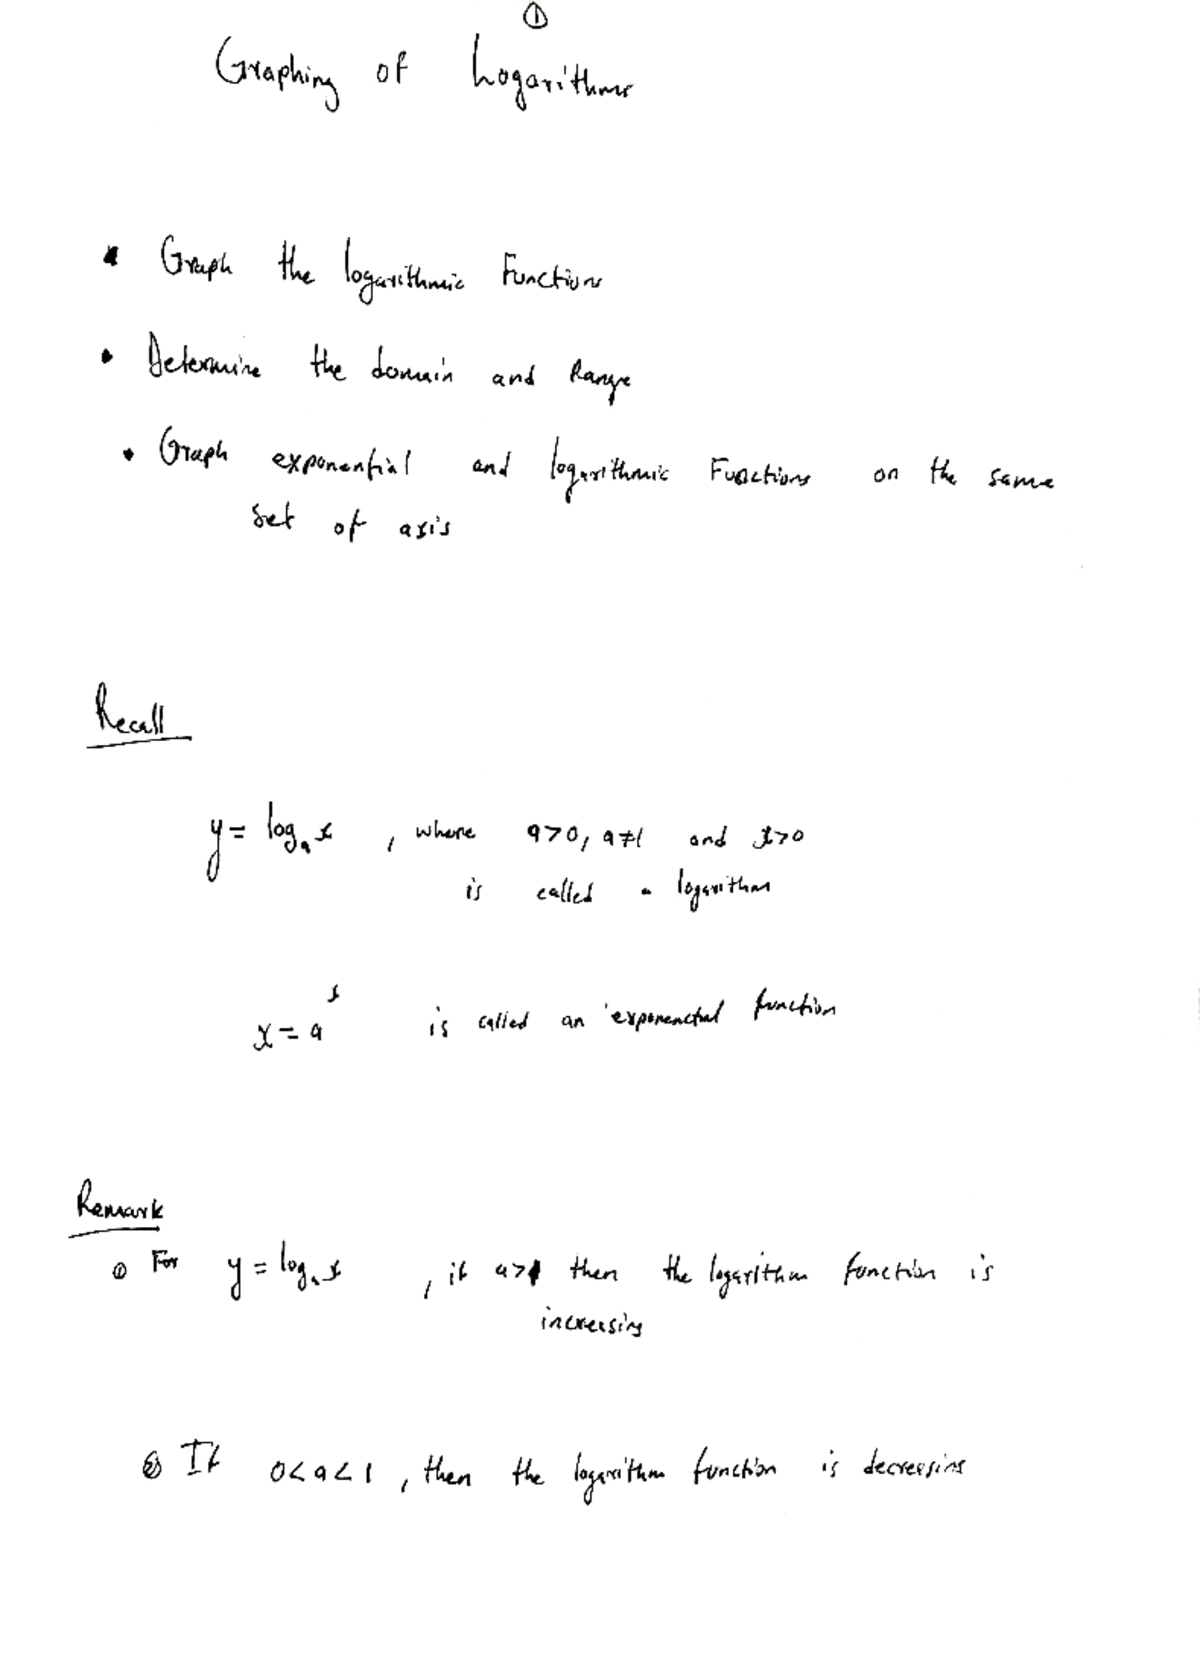 ①
Graphing of Logarithms
• Graph the logarithmic Functions
• Determine the domain and Range
• Graph exponential and logarithmic Functions on the same
set of axis
Recall
y = logₐ x , where a>0, a≠1 and x>0
is called a logarithm
x = a^y is called an exponenctial function
Remark
① For y = logₐ x , if a>1 then the logarithm function is
increasing
② If 0<a<1 , then the logarithm function is decreasing